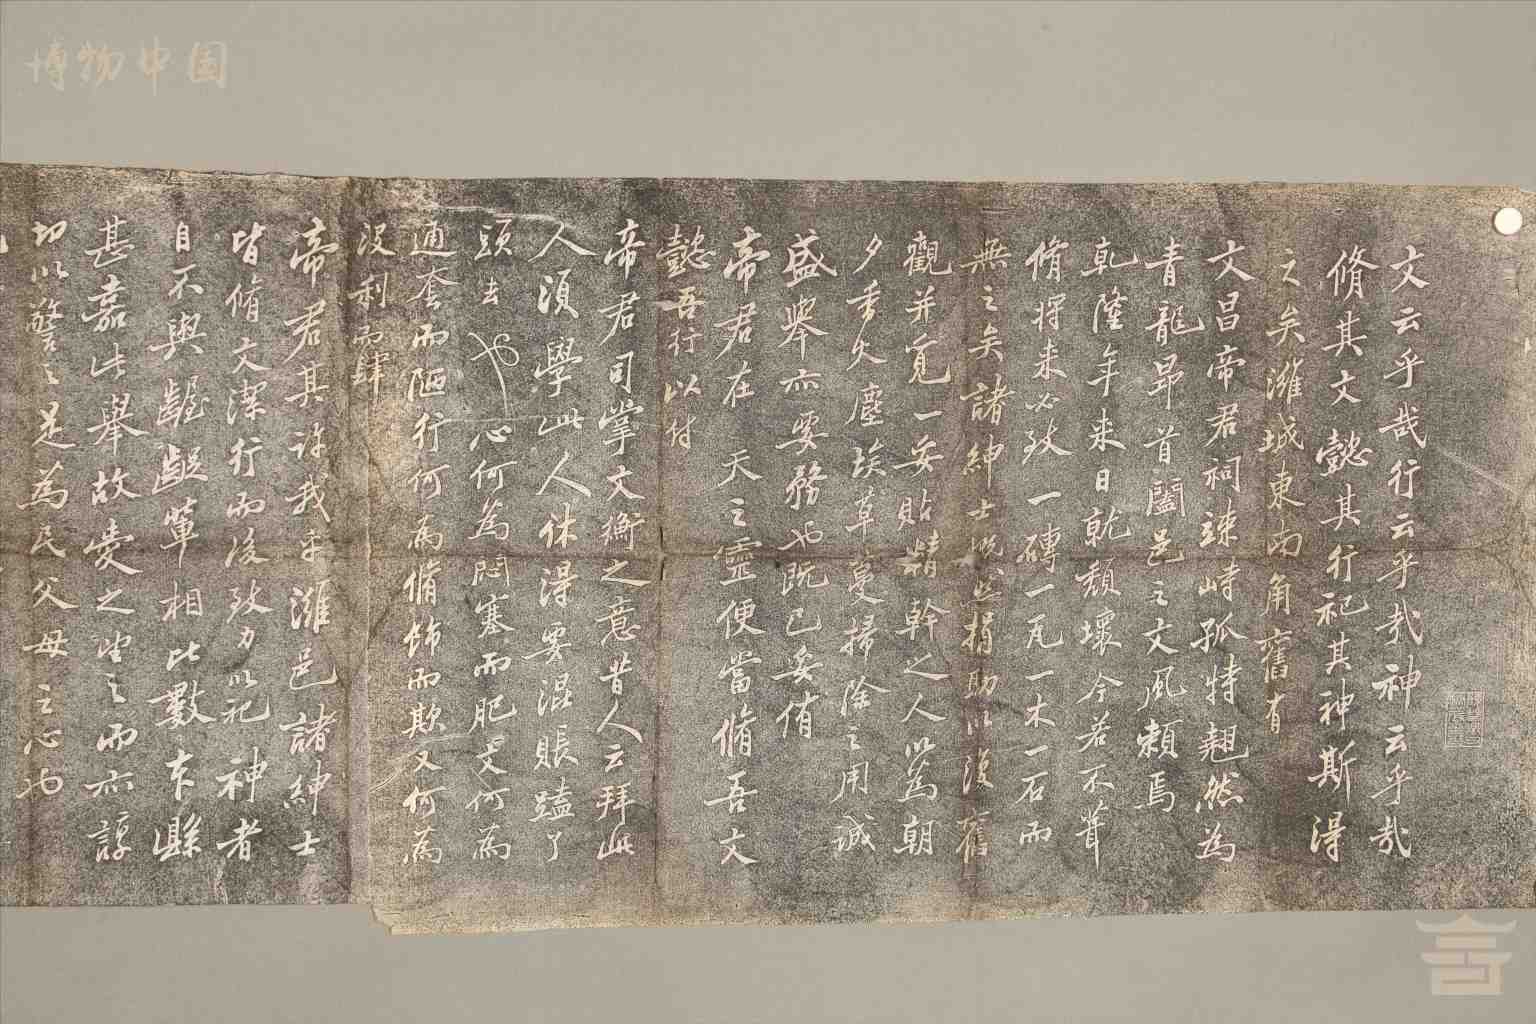 文云乎哉行云乎哉神云乎哉
脩其文懿其行祀其神斯得
之矣濰城東南角舊有
文昌帝君祠竦峙孤特翹然為
青龍昂首闔邑之文風賴焉
乾隆年来日就頹壞今若不葺
脩将来必致一磚一瓦一木一石而
無之矣諸紳士慨然捐助以復舊
觀并覓一妥貼精幹之人以為朝
夕香火塵埃草蔓掃除之用誠
盛舉亦要務也既已妥侑
帝君在天之靈便當脩吾文
懿吾行以付
帝君司掌文衡之意昔人云拜此
人須學此人休得要混賬磕了
頭去也心何為悶塞而肥文何為
通套而陋行何為脩飾而欺又何為
没利而肆
帝君其許我乎濰邑諸紳士
皆脩文潔行而後致力以祀神者
自不與齷齪輩相比數本縣
甚嘉此舉故愛之望之而亦諄
切以警之是為民父母之心也
博物中国